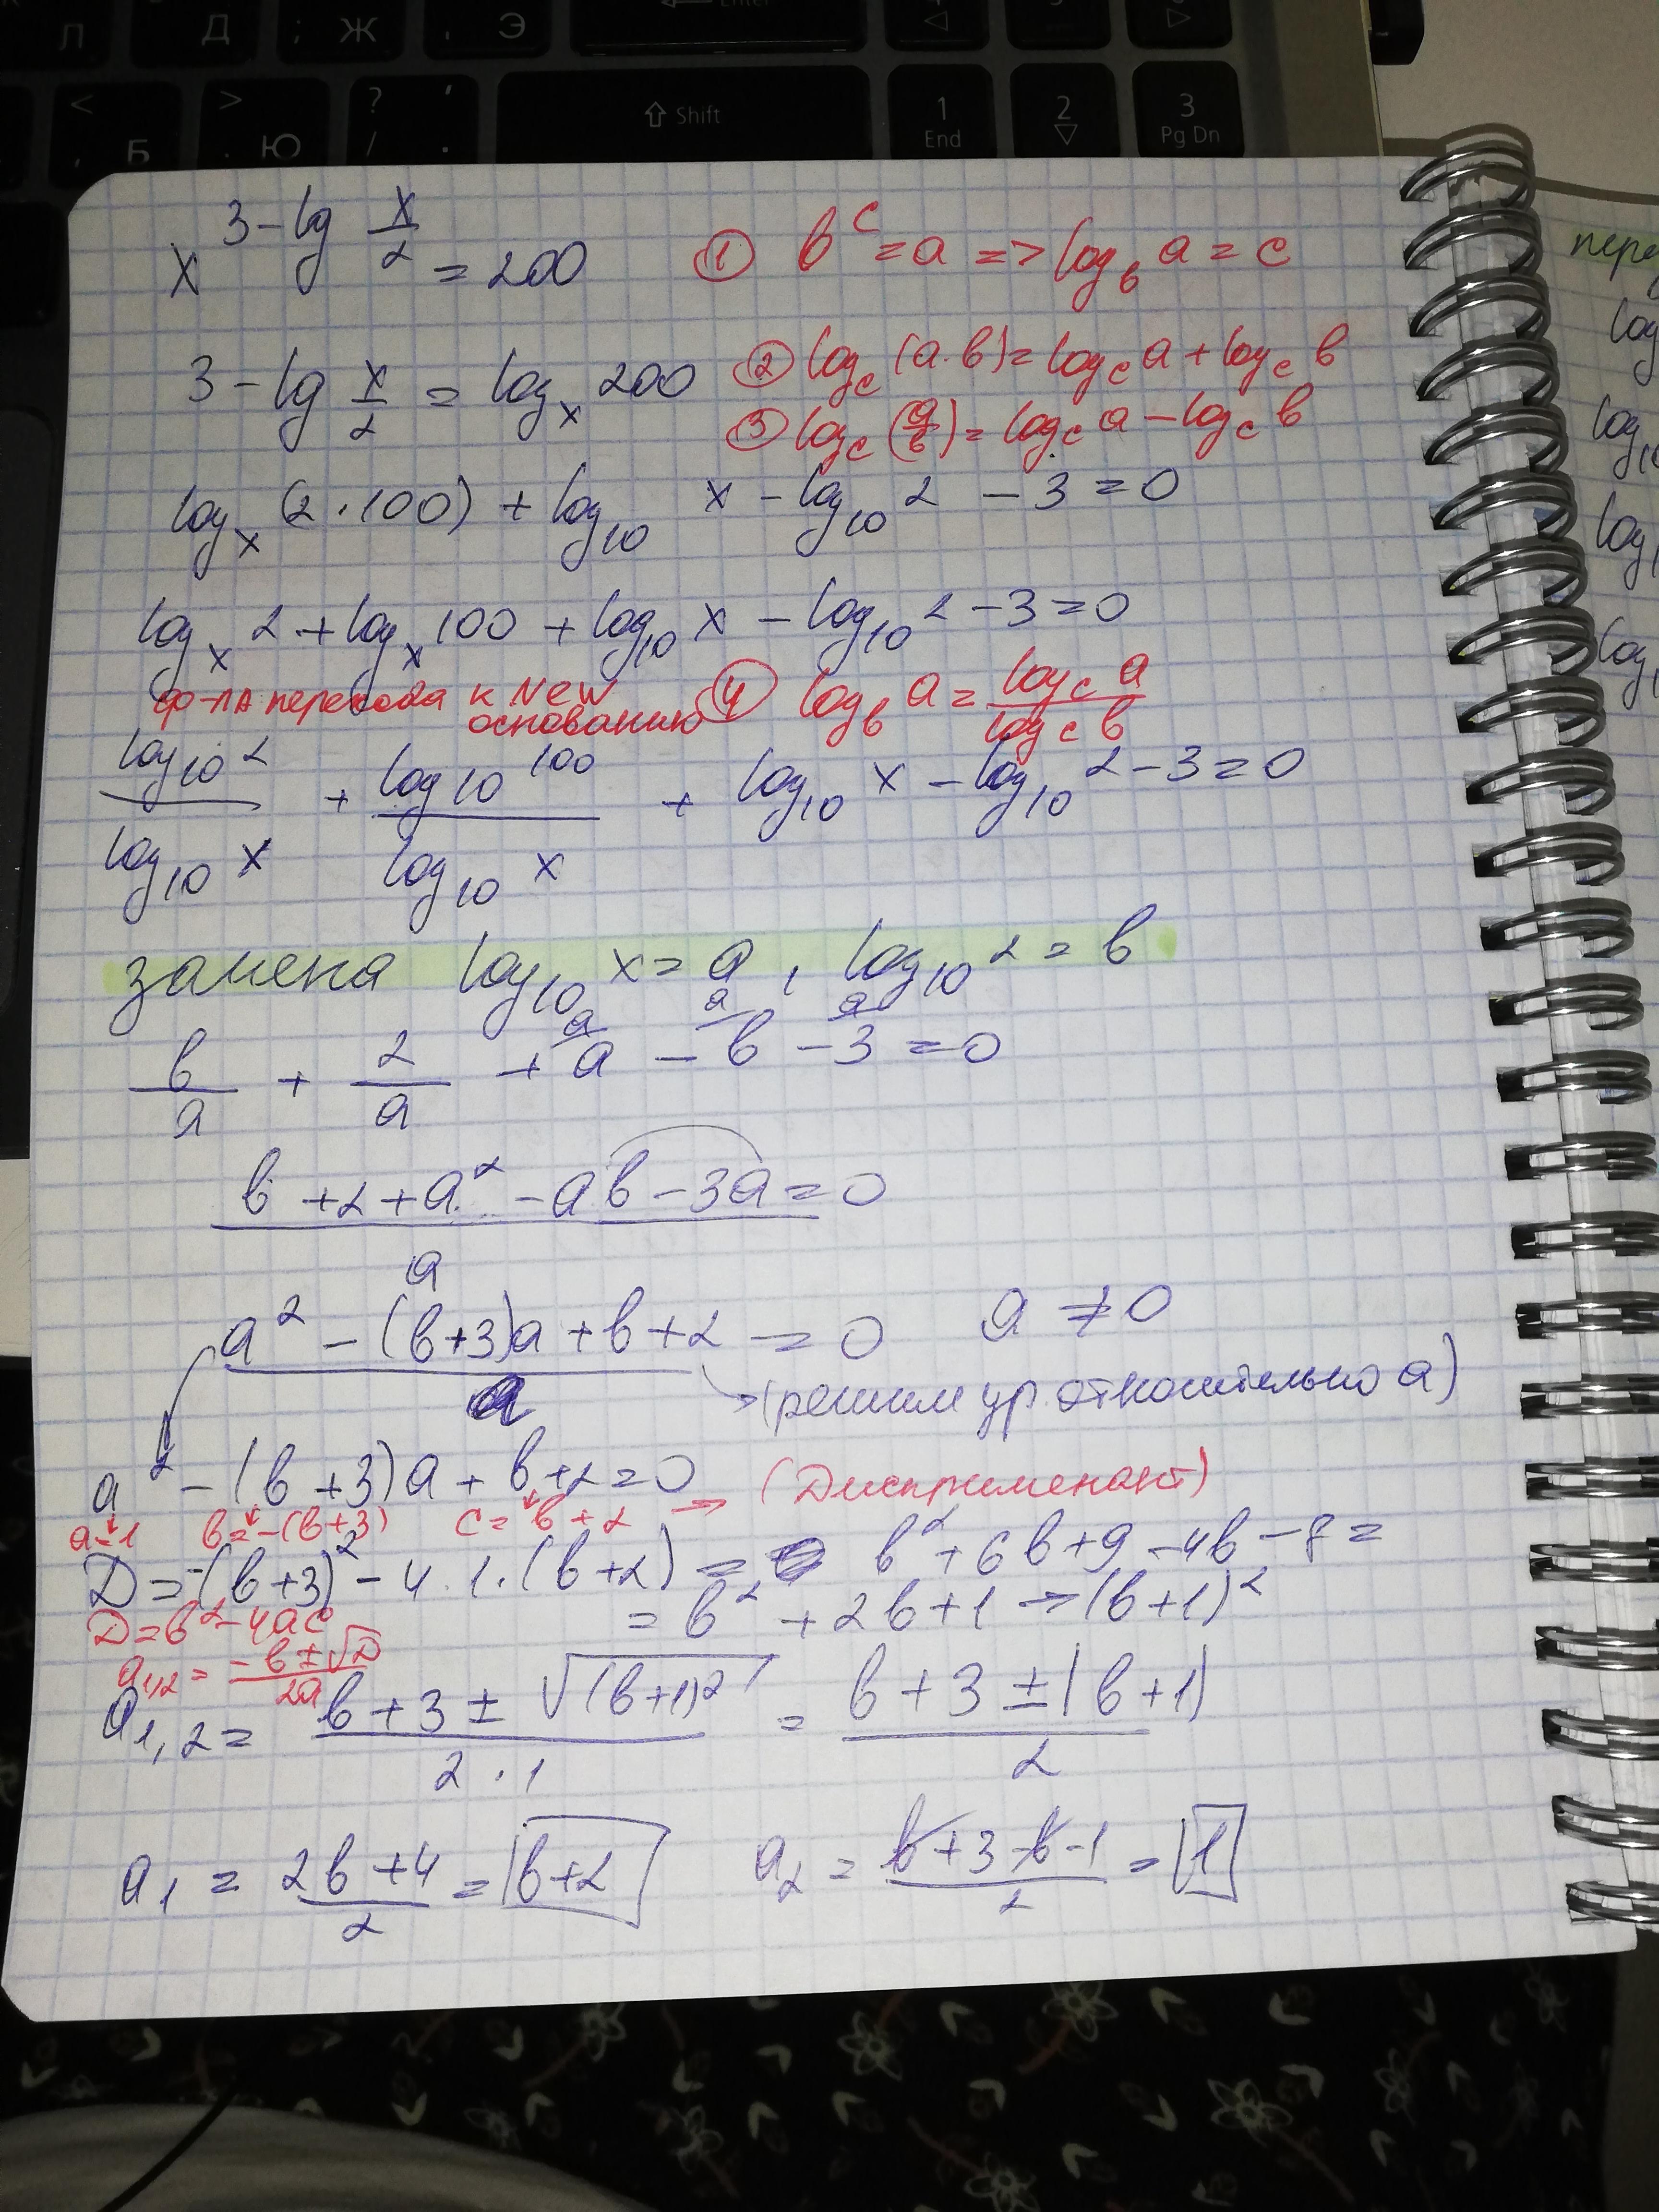 Л Д ; Ж , Э Enter
< , Б > . Ю ? / . Shift 1 End 2 3 Pg Dn
x^{3-lg x/2} = 200 ① b^c = a => log_b a = c
3 - lg x/2 = log_x 200 ② log_c (a·b) = log_c a + log_c b
③ log_c (a/b) = log_c a - log_c b
log_x (2·100) + log_10 x - log_10 2 - 3 = 0
log_x 2 + log_x 100 + log_10 x - log_10 2 - 3 = 0
ф-ла перехода к New основанию ④ log_b a = log_c a / log_c b
log_10 2 / log_10 x + log_10 100 / log_10 x + log_10 x - log_10 2 - 3 = 0
замена log_10 x = a , log_10 2 = b
b/a + 2/a + a - b - 3 = 0
(b + 2 + a² - ab - 3a) / a = 0
(a² - (b+3)a + b + 2) / a = 0 a ≠ 0
(решим ур. относительно a)
a² - (b+3)a + b+2 = 0 → (Дискрименант)
a=1 b=-(b+3) c=b+2
D = -(b+3)² - 4·1·(b+2) = b² + 6b + 9 - 4b - 8 =
= b² + 2b + 1 → (b+1)²
D = b² - 4ac
a_{1,2} = (-b ± √D) / 2a
a_{1,2} = (b + 3 ± √(b+1)²) / 2·1 = (b + 3 ± |b+1|) / 2
a_1 = (2b + 4) / 2 = b+2 a_2 = (b+3-b-1) / 2 = 1
log
log
log
log